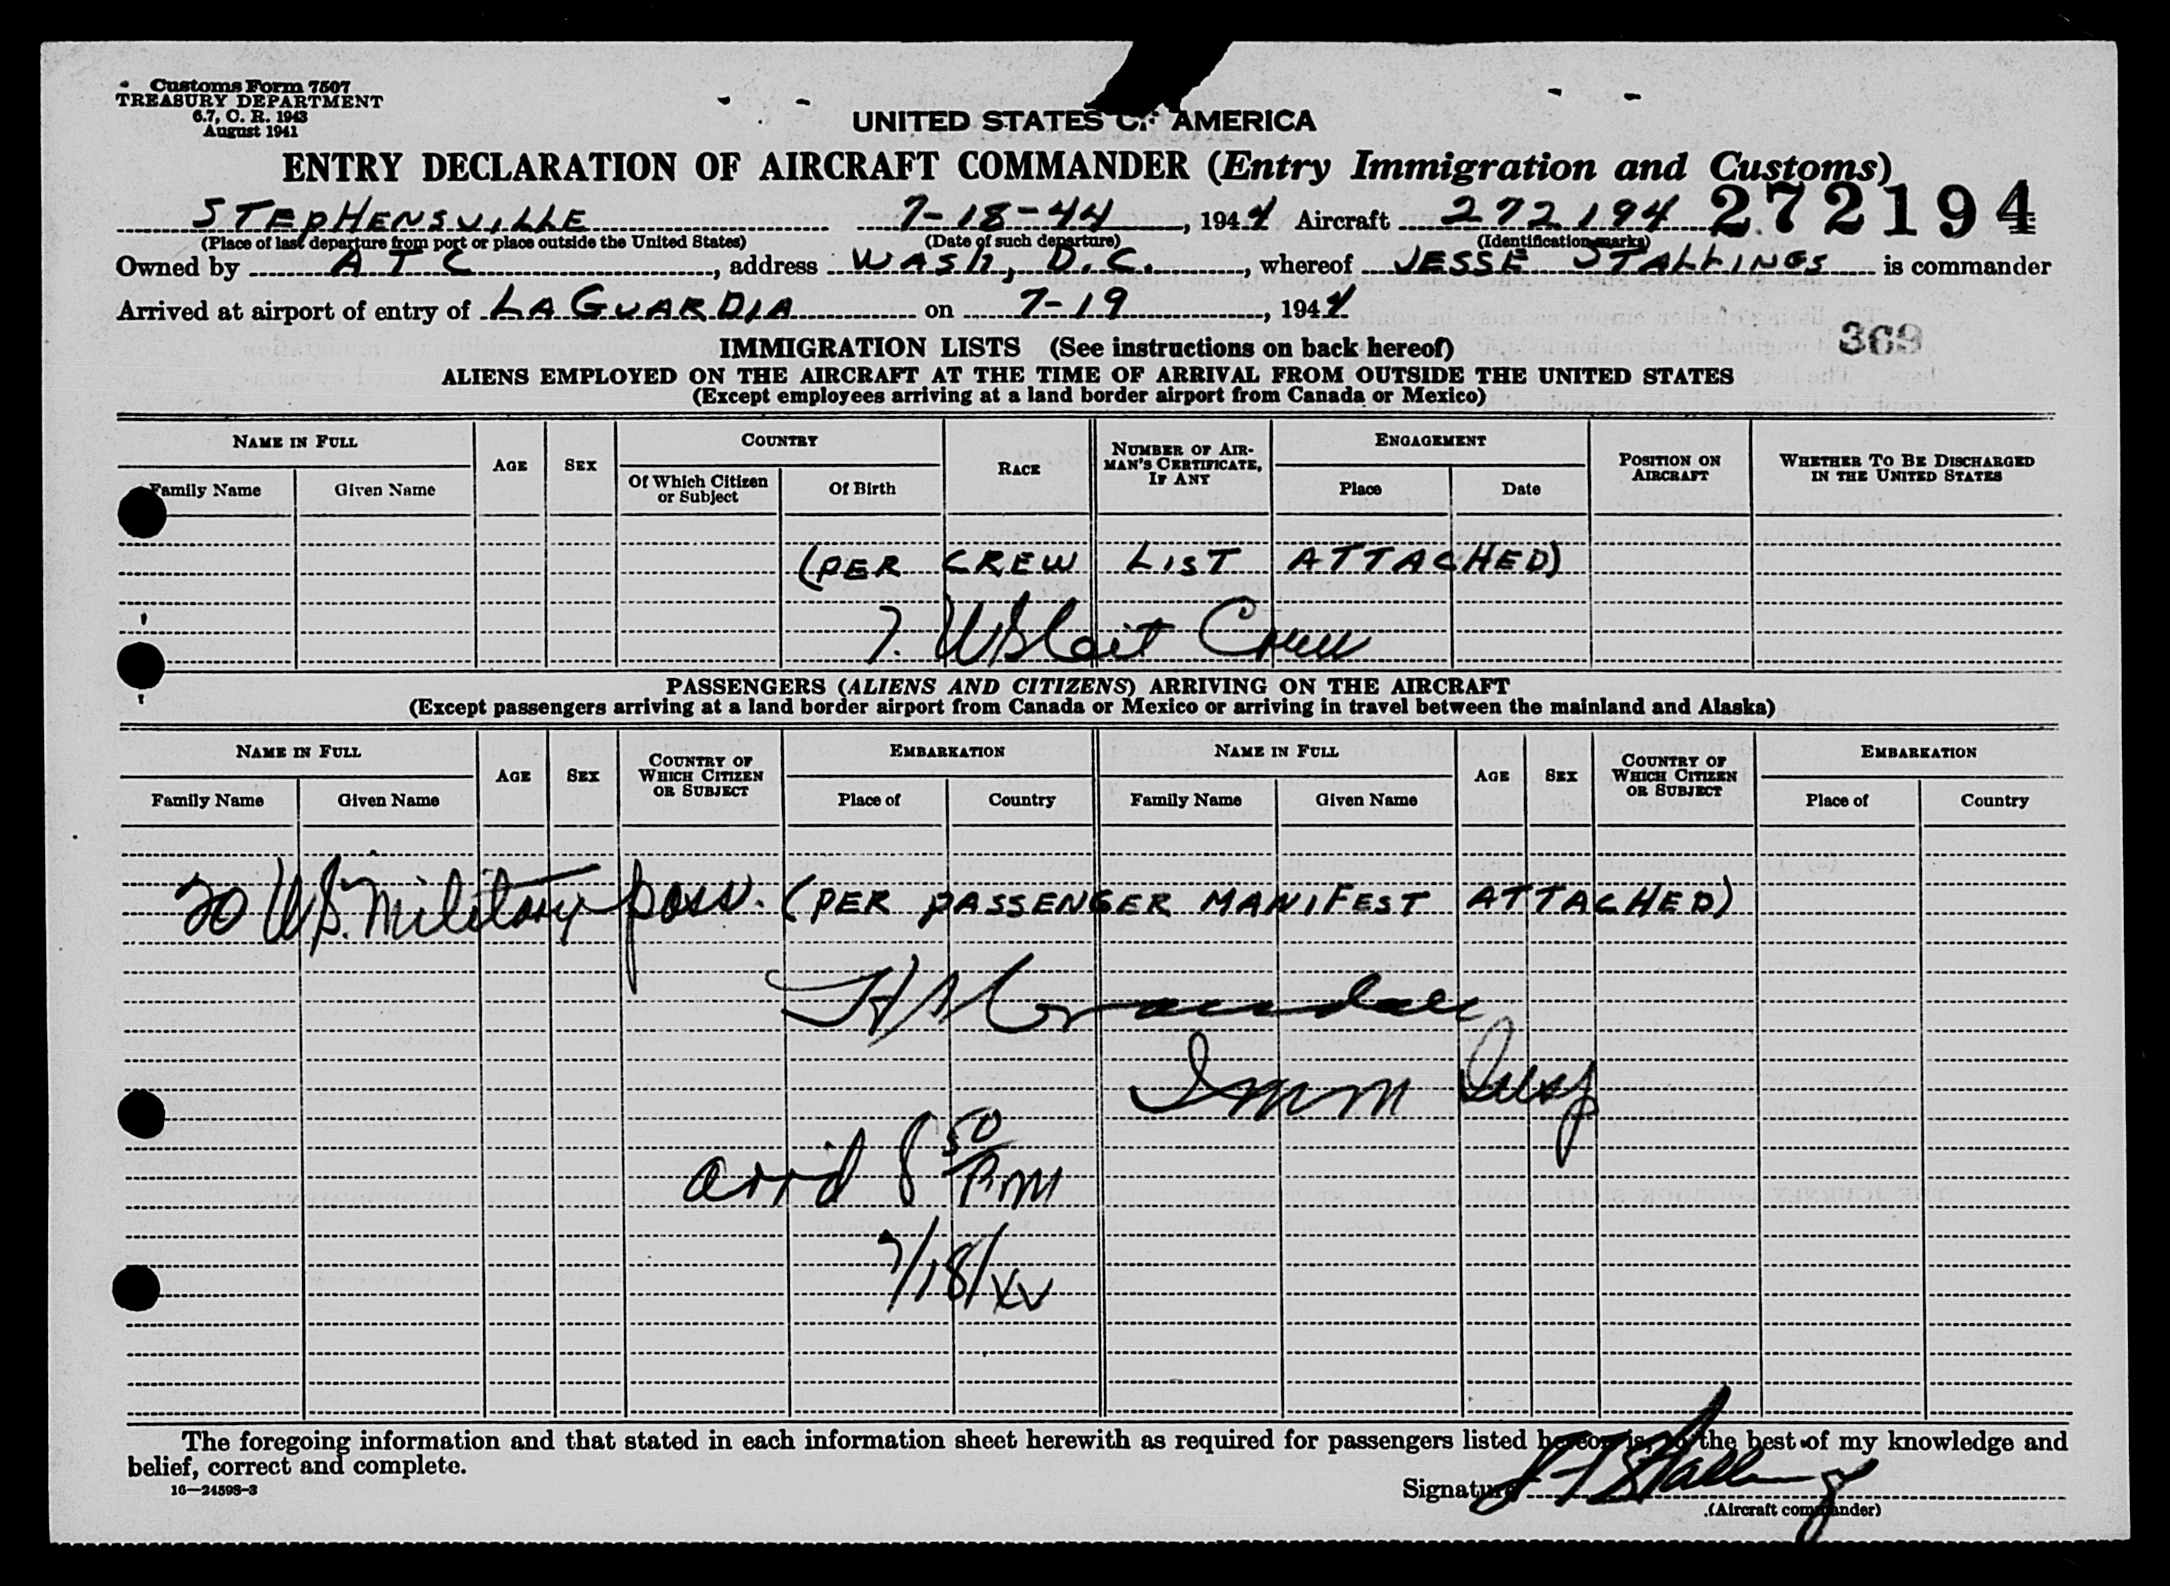 Customs Form 7507
TREASURY DEPARTMENT
6.7, C. R. 1943
August 1941
UNITED STATES OF AMERICA
ENTRY DECLARATION OF AIRCRAFT COMMANDER (Entry Immigration and Customs)
STEPHENSVILLE 7-18-44, 1944 Aircraft 272194 272194
(Place of last departure from port or place outside the United States) (Date of such departure) (Identification marks)
Owned by ATC, address WASH, D.C., whereof JESSE STALLINGS is commander
Arrived at airport of entry of LA GUARDIA on 7-19, 1944
369
IMMIGRATION LISTS (See instructions on back hereof)
ALIENS EMPLOYED ON THE AIRCRAFT AT THE TIME OF ARRIVAL FROM OUTSIDE THE UNITED STATES
(Except employees arriving at a land border airport from Canada or Mexico)
NAME IN FULL AGE SEX COUNTRY RACE NUMBER OF AIRMAN'S CERTIFICATE, IF ANY ENGAGEMENT POSITION ON AIRCRAFT WHETHER TO BE DISCHARGED IN THE UNITED STATES
Family Name Given Name Of Which Citizen or Subject Of Birth Place Date
(PER CREW LIST ATTACHED)
7. US Cit Crew
PASSENGERS (ALIENS AND CITIZENS) ARRIVING ON THE AIRCRAFT
(Except passengers arriving at a land border airport from Canada or Mexico or arriving in travel between the mainland and Alaska)
NAME IN FULL AGE SEX COUNTRY OF WHICH CITIZEN OR SUBJECT EMBARKATION NAME IN FULL AGE SEX COUNTRY OF WHICH CITIZEN OR SUBJECT EMBARKATION
Family Name Given Name Place of Country Family Name Given Name Place of Country
20 US. military pass. (PER PASSENGER MANIFEST ATTACHED)
Imm Insp
arrd 8 50 PM
7/18/44
The foregoing information and that stated in each information sheet herewith as required for passengers listed hereon is, to the best of my knowledge and
belief, correct and complete.
16—24598-3
Signature J T Stallings
(Aircraft commander)